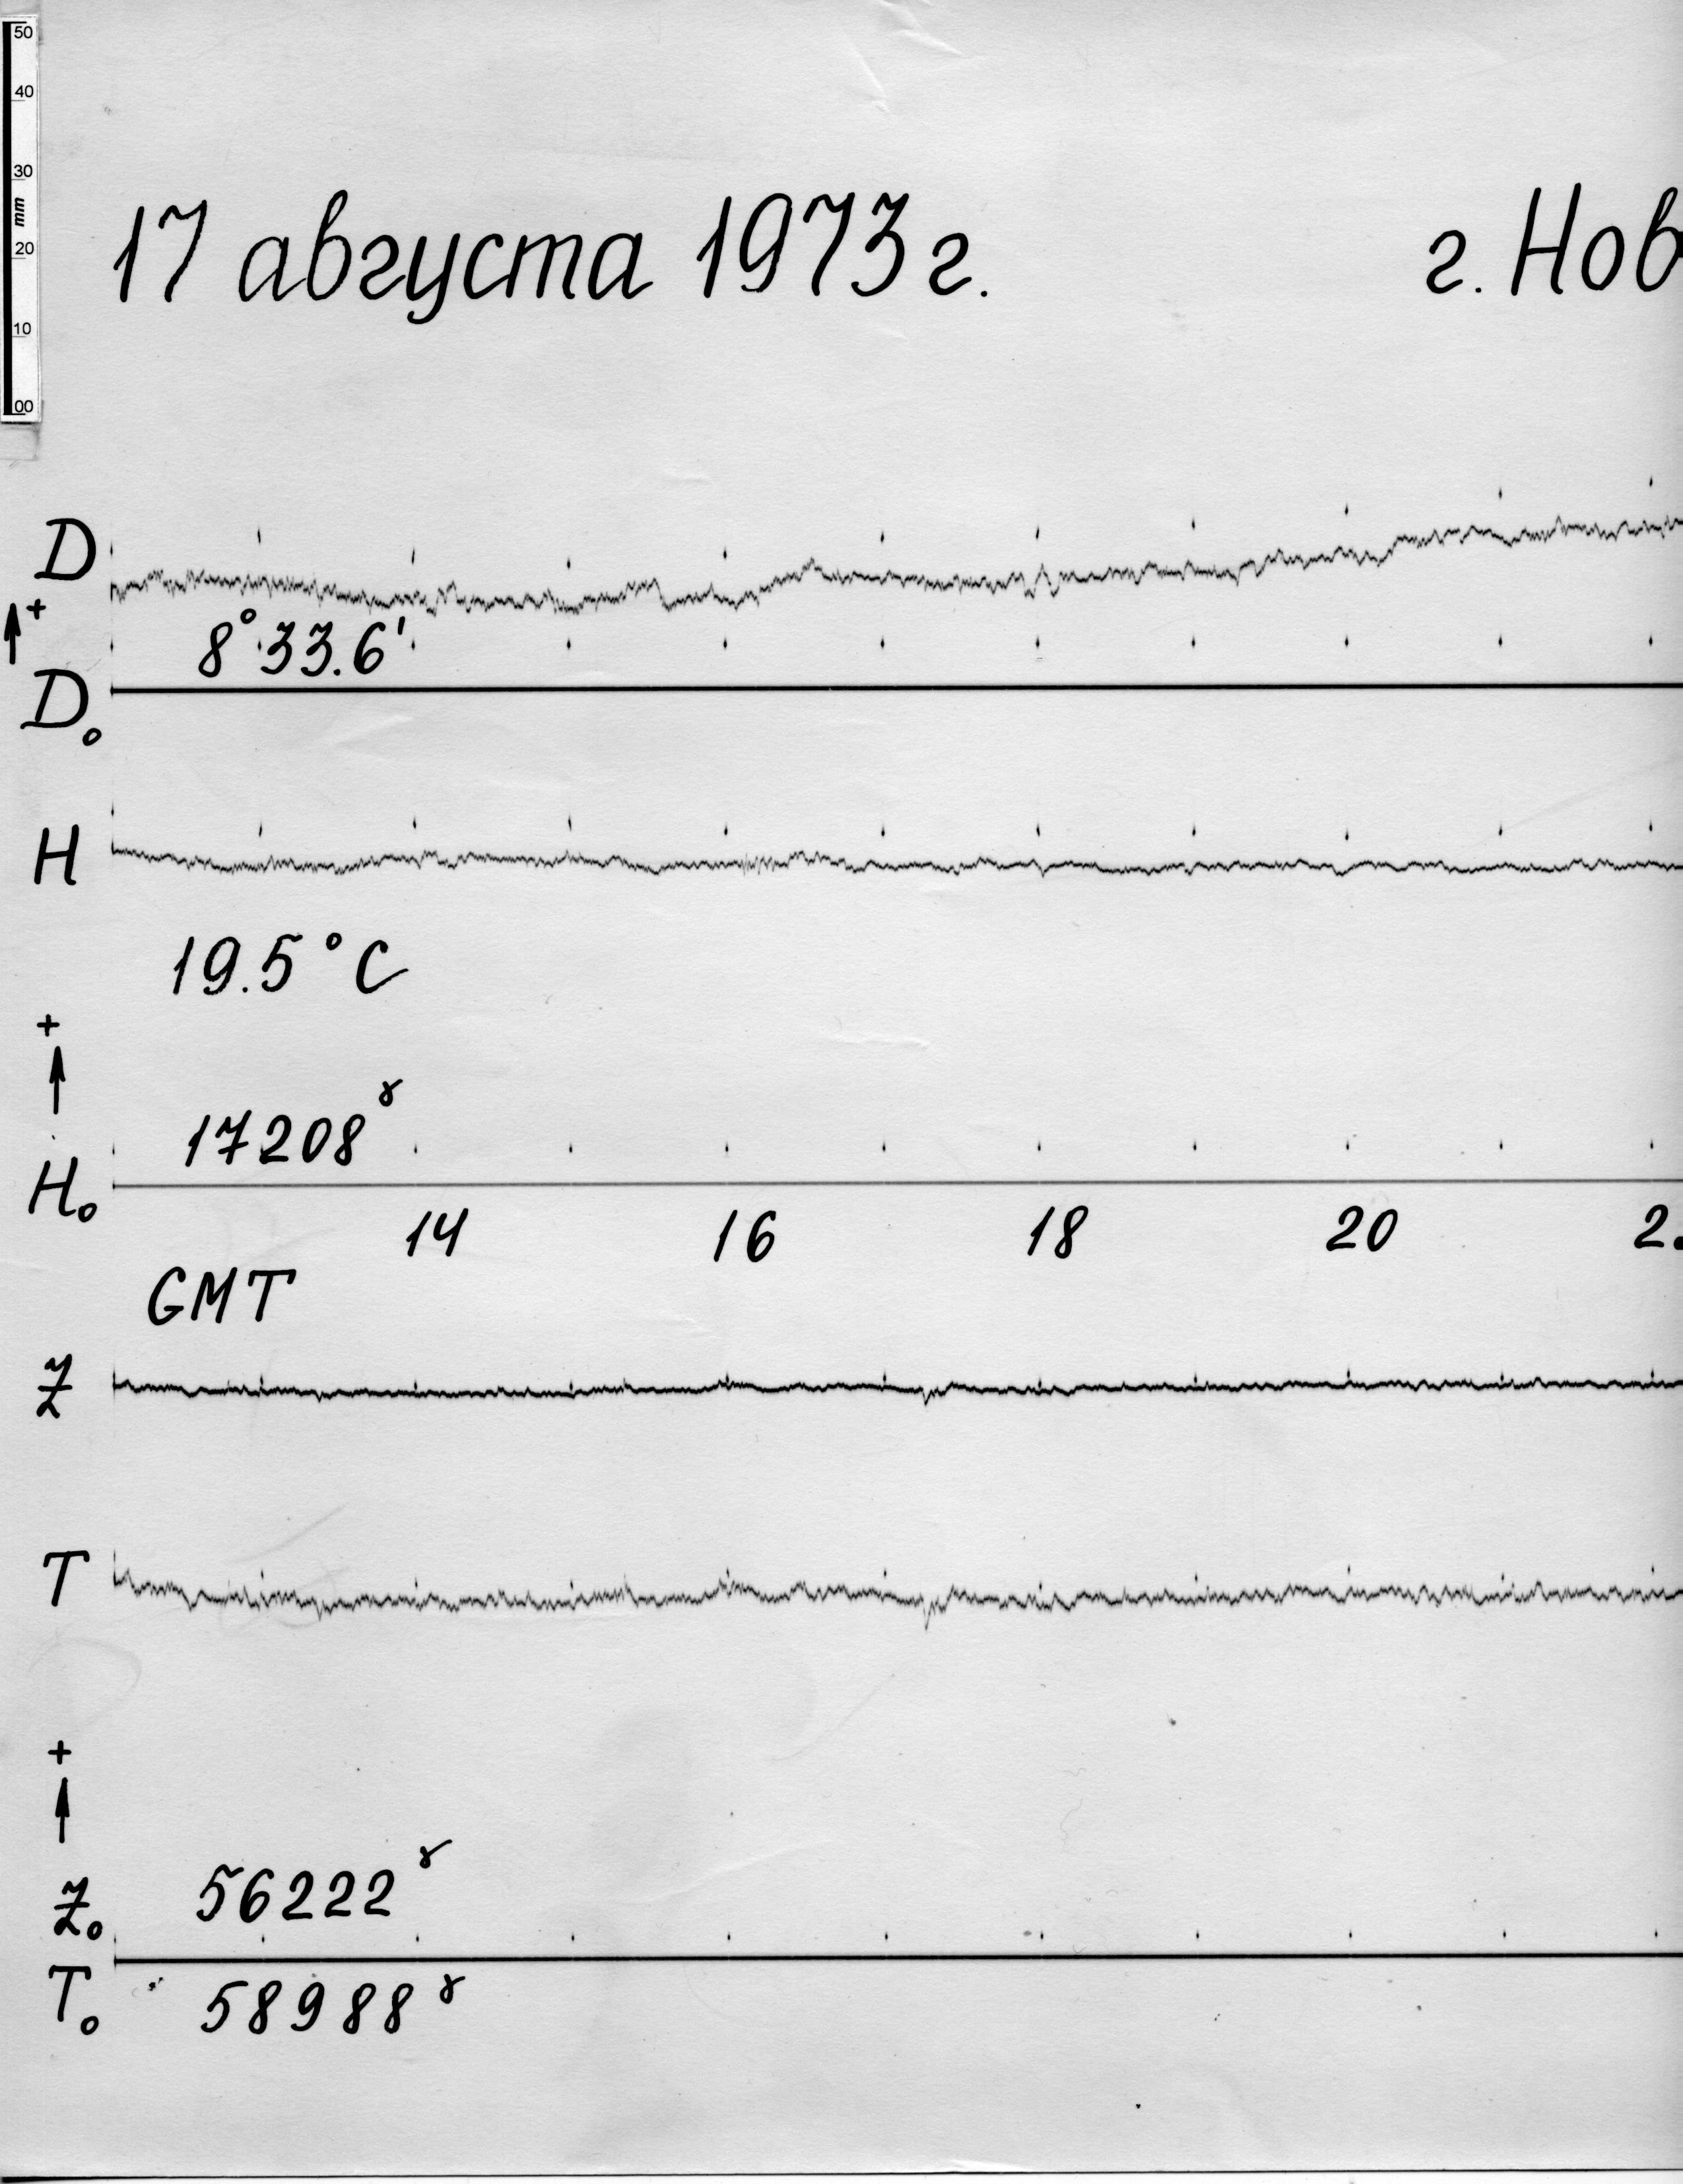 50
40
30
mm
20
10
00
17 августа 1973 г. г. Нов
D
+
8° 33.6'
D₀
H
19.5°C
+
17208ˠ
H₀
14 16 18 20 2
GMT
Z
T
+
56222ˠ
Z₀
T₀ 58988ˠ